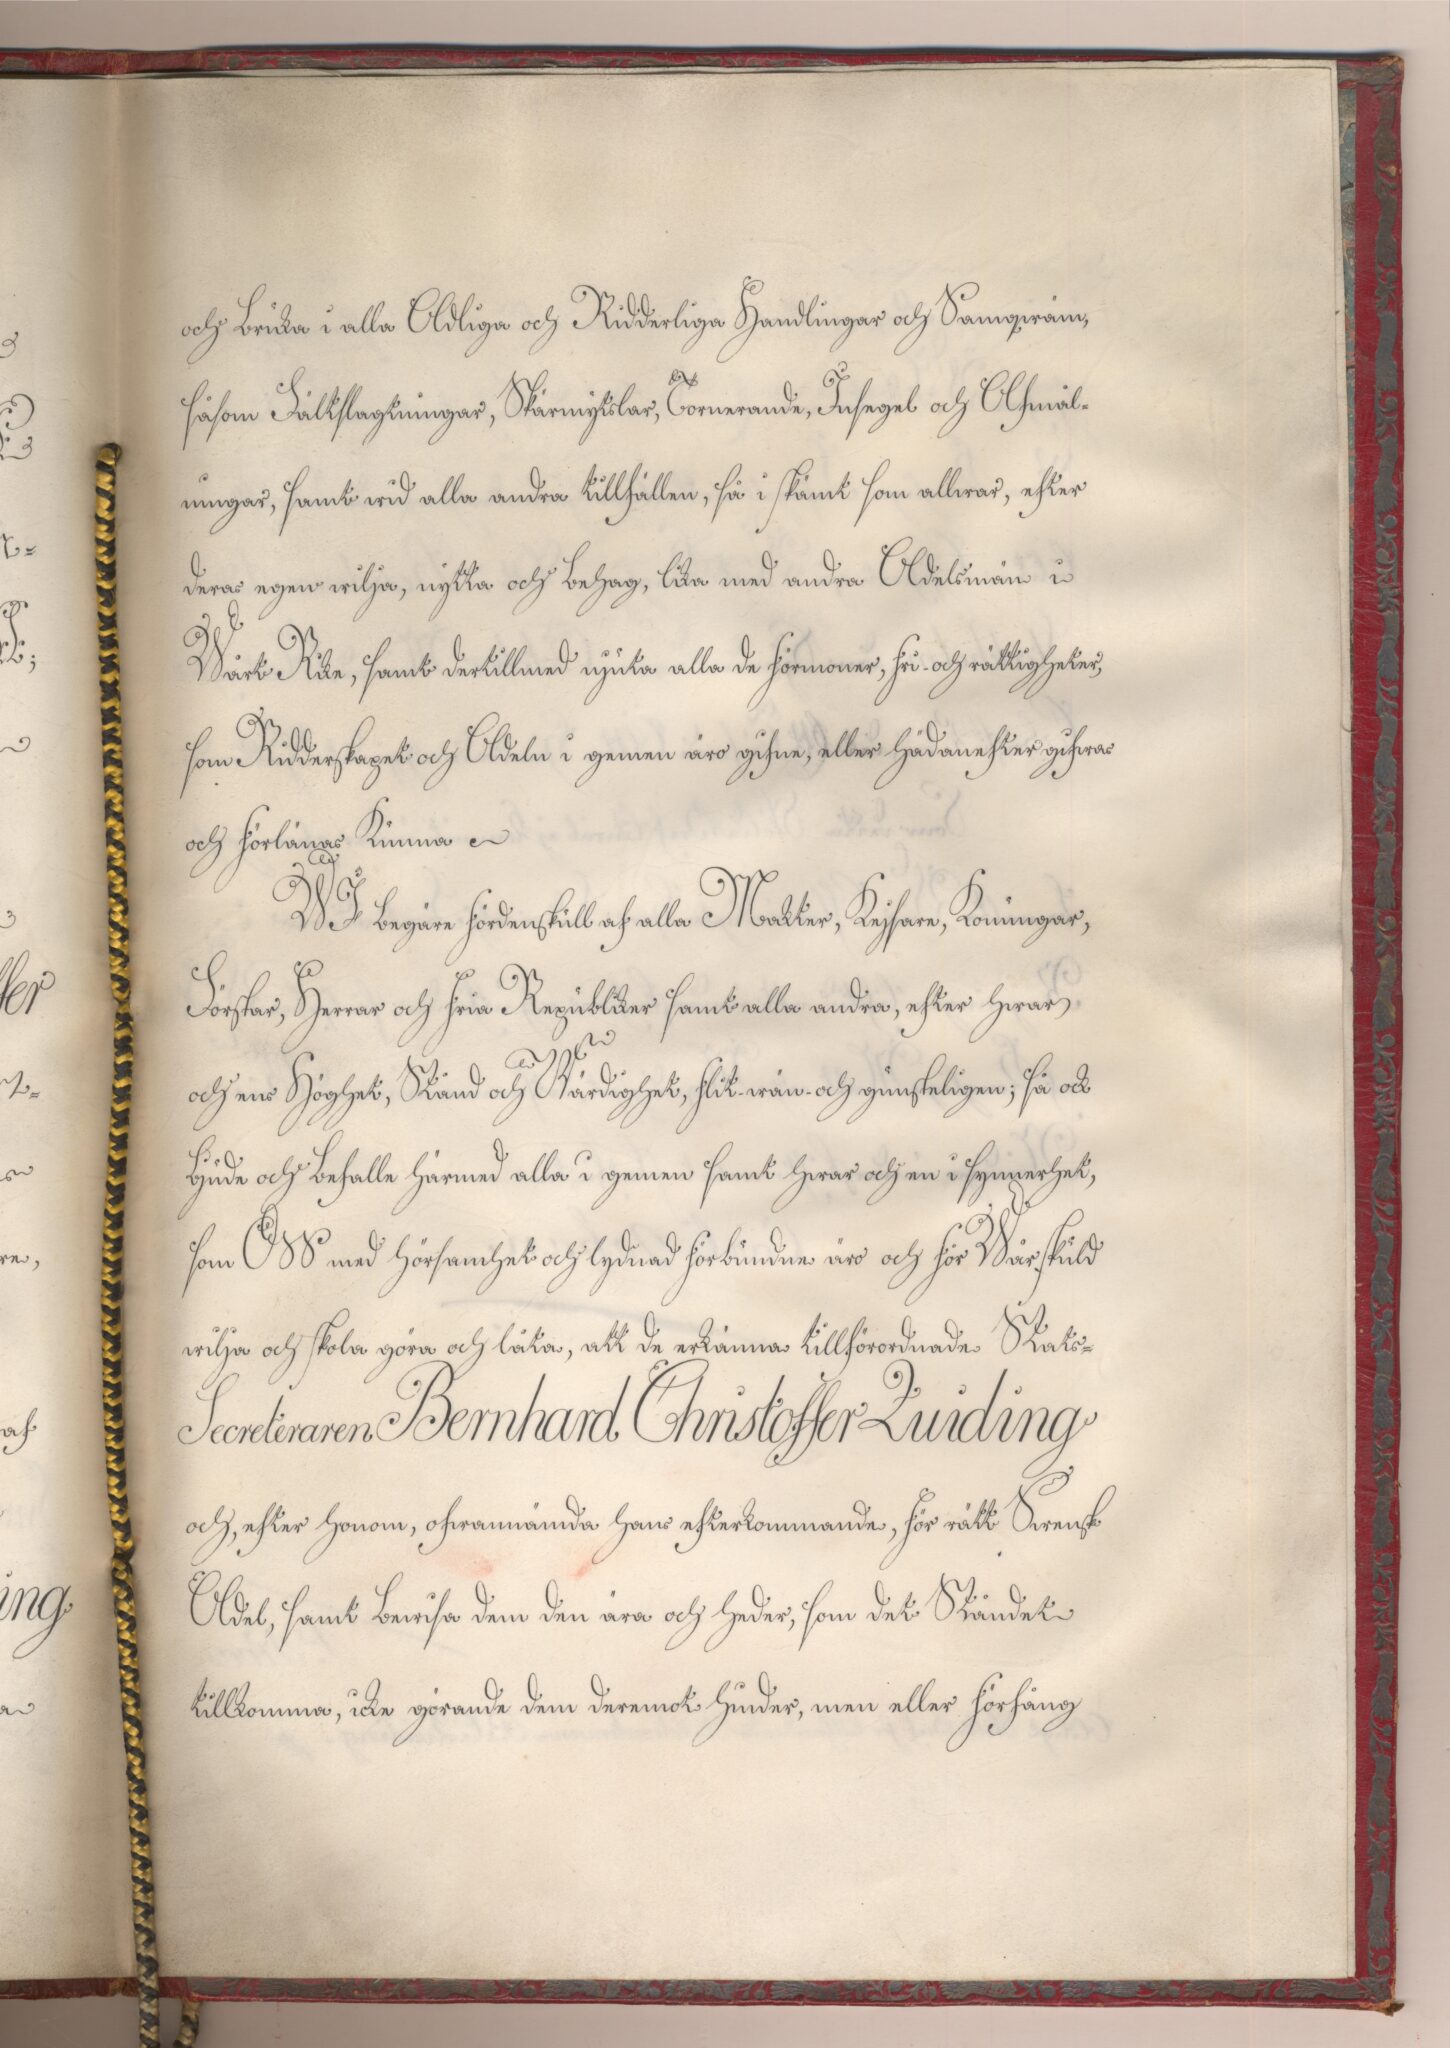 och bruka i alla Adliga och Ridderliga Handlingar och Samqväm,
såsom Fältslagtningar, Skärmytslar, Tornerande, Insegel och Afmål-
ningar, samt wid alla andra tillfällen, så i skämt som allwar, efter
deras egen wilja, nytta och behag, lika med andra Adelsmän i
Wårt Rike, samt dertillmed njuta alla de förmoner, fri- och rättigheter,
som Ridderskapet och Adeln i gemen äro gifne, eller hädanefter gifwas
och förlänas kunna
WJ begäre fördenskull af alla Makter, Kejsare, Konungar,
Förstar, Herrar och fria Republiker samt alla andra, efter hwar
och ens Höghet, Stånd och Wärdighet, flit- wän- och gunsteligen; så ock
bjude och befalle härmed alla i gemen samt hwar och en i synnerhet,
som OSS med hörsamhet och lydnad förbundne äro och för Wår skuld
wilja och skola göra och låta, att de erkänna tillförordnade Stats-
Secreteraren Bernhard Christoffer Quiding
och, efter honom, ofwannämda hans efterkommande, för rätt Swensk
Adel, samt bewisa dem den ära och heder, som det Ståndet
tillkomma, icke görande dem deremot hinder, men eller förfång